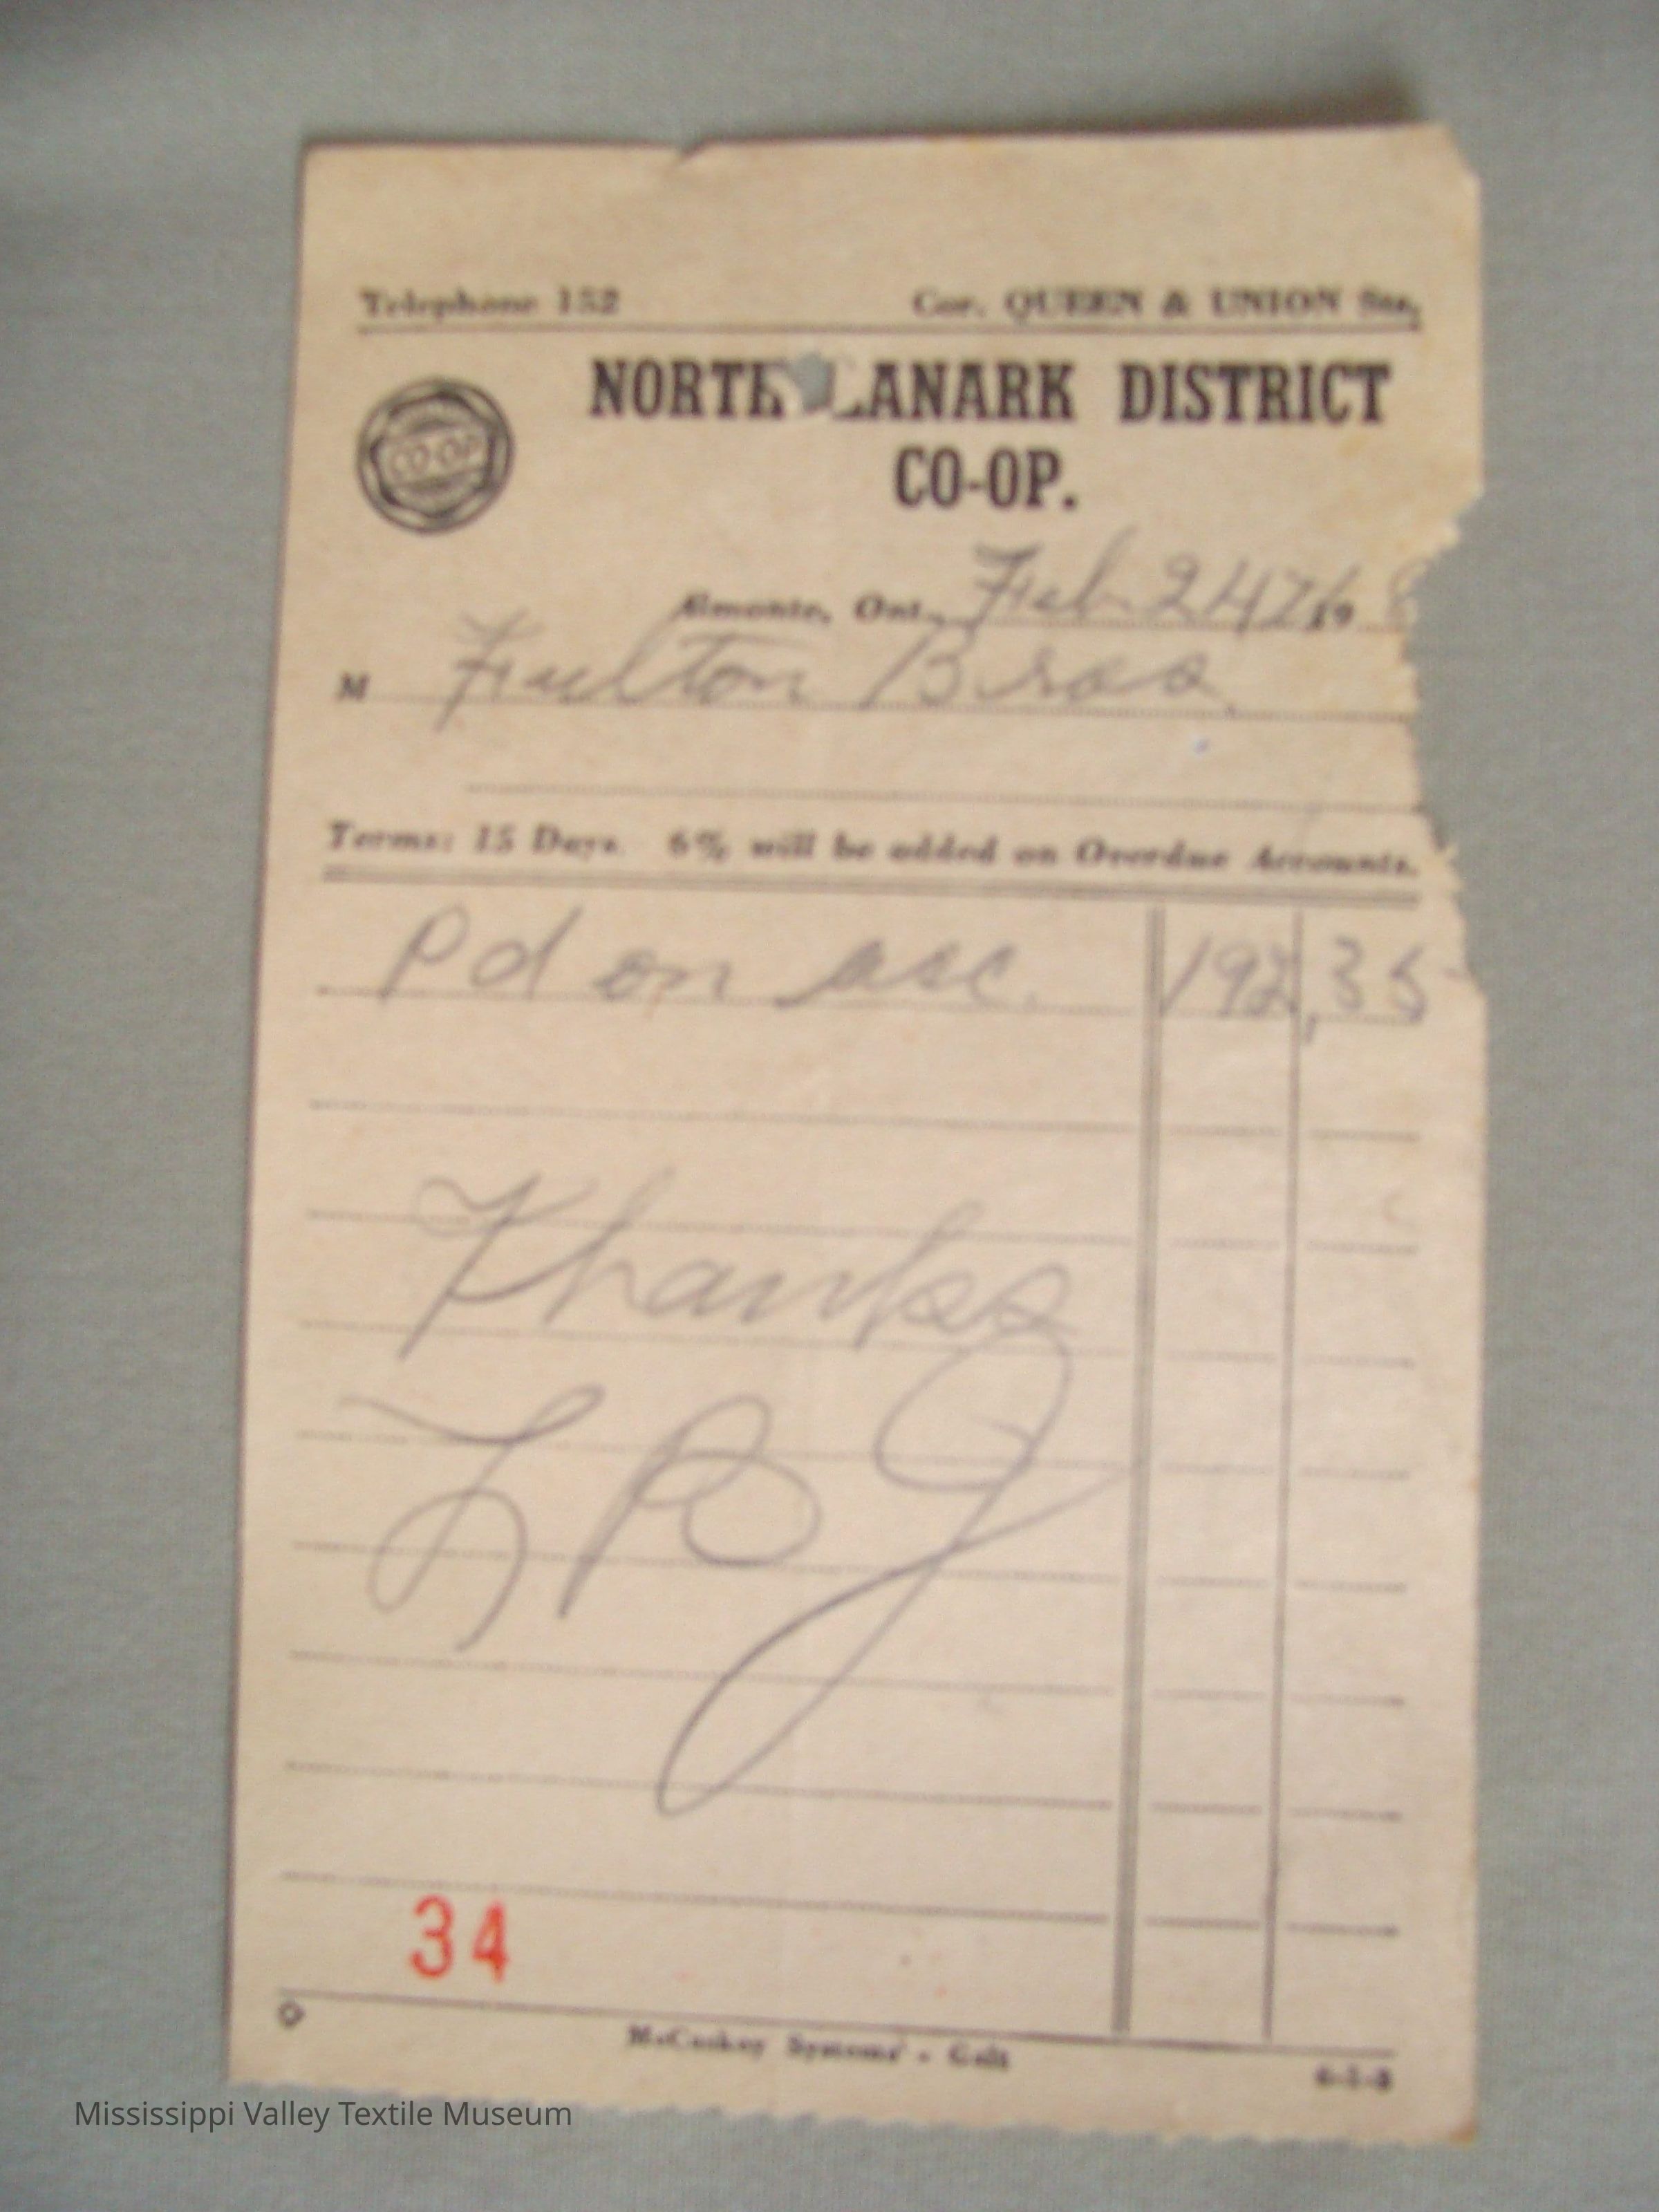 Telephone 152 Cor. QUEEN & UNION Sts,
NORTH LANARK DISTRICT
CO-OP
CO-OP.
Almonte, Ont., Feb 24 19
M Fulton Bros.
Terms: 15 Days. 6% will be added on Overdue Accounts.
Pd on acc. 192,35
Thanks
34
McCaskey Systems - Galt
Mississippi Valley Textile Museum